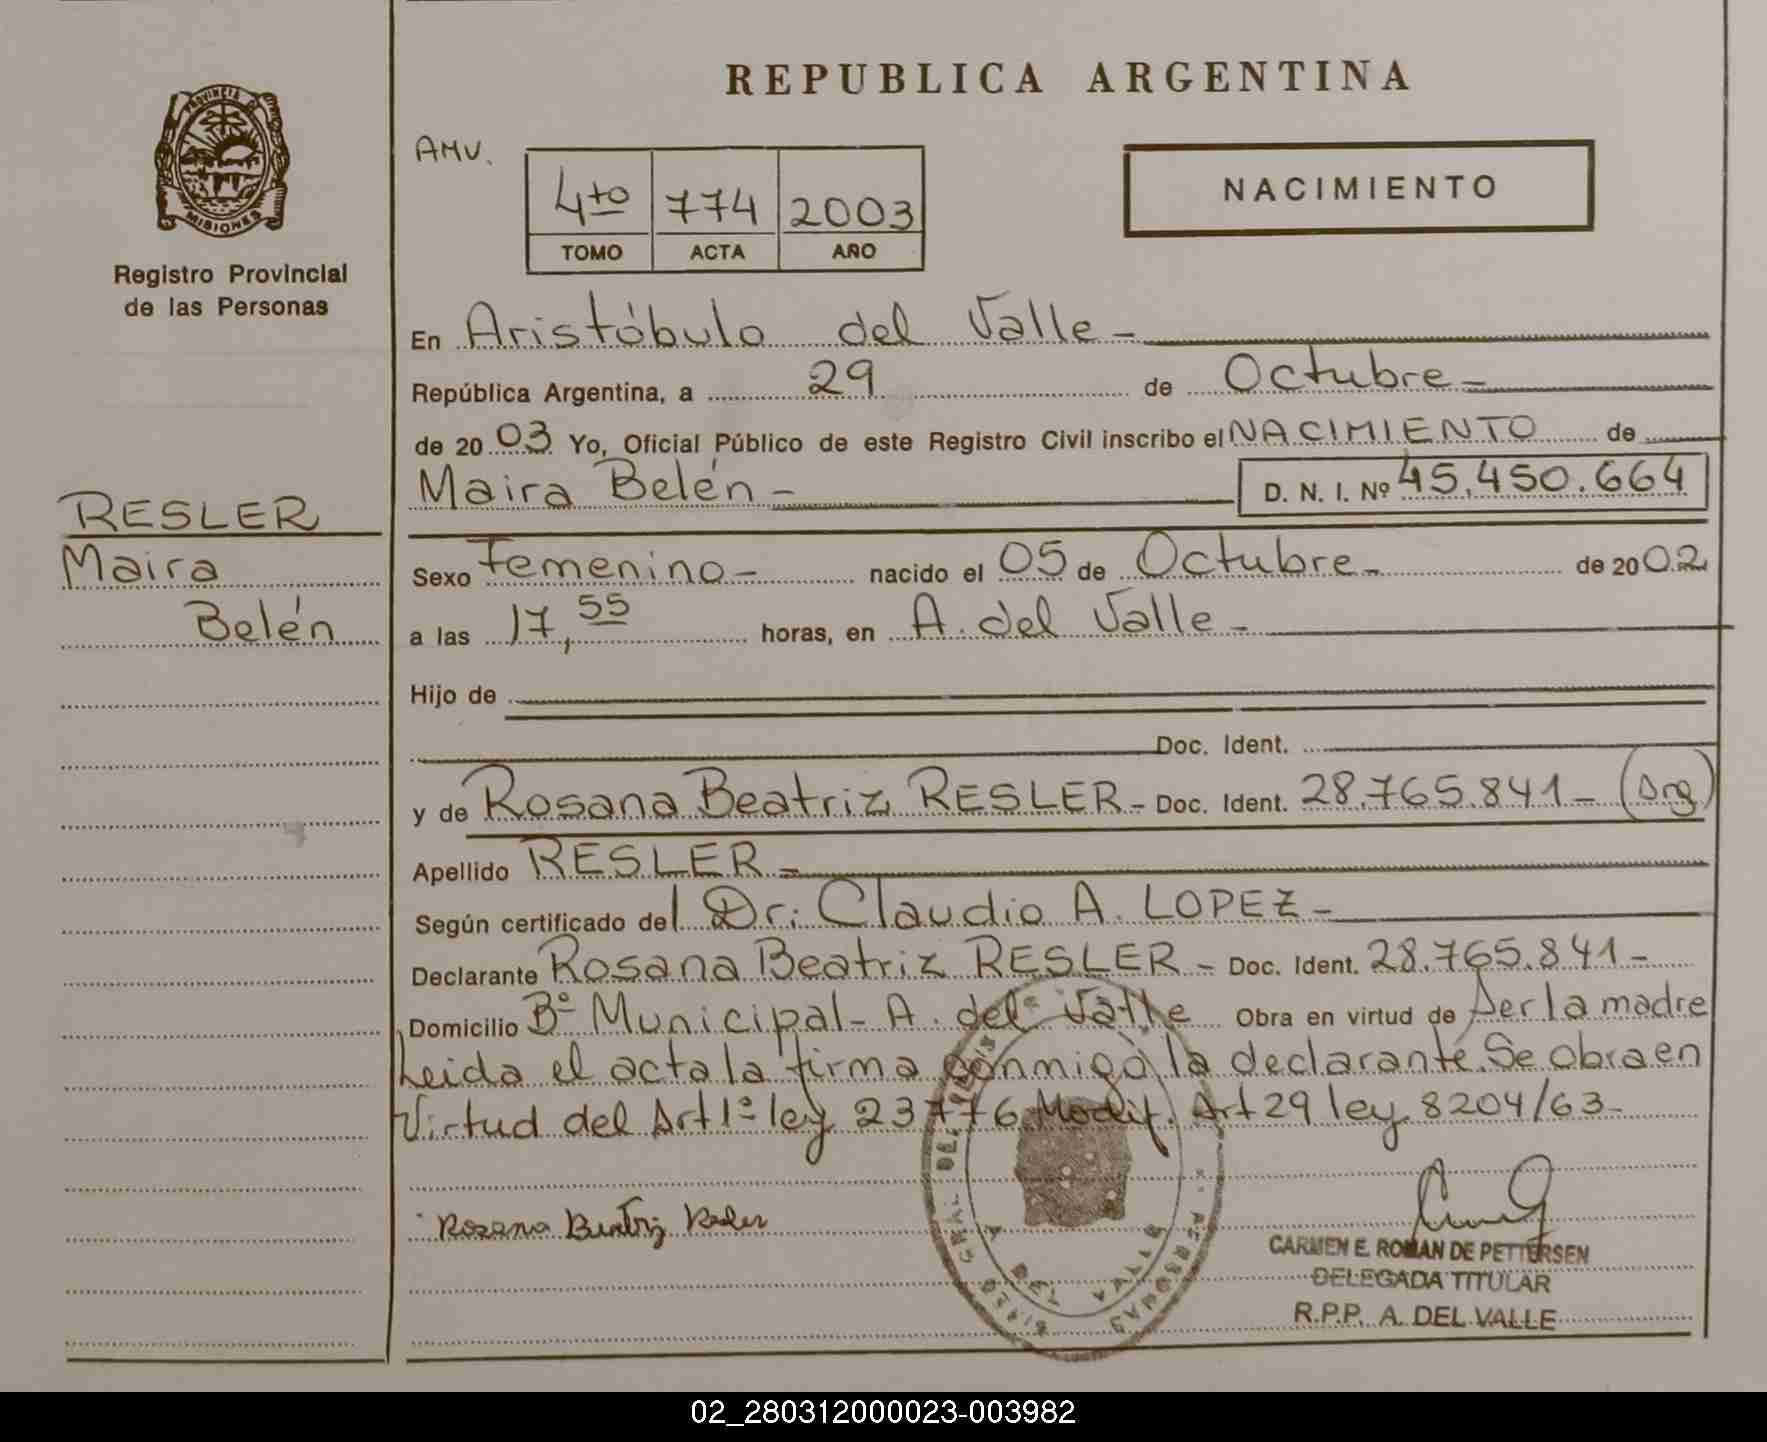 PROVINCIA DE
MISIONES
Registro Provincial
de las Personas
RESLER
Maira
Belén
REPUBLICA ARGENTINA
AMV.
4to 774 2003
TOMO ACTA AÑO
NACIMIENTO
En Aristóbulo del Valle -
República Argentina, a 29 de Octubre -
de 20 03 Yo, Oficial Público de este Registro Civil inscribo el NACIMIENTO de
Maira Belén - D. N. I. Nº 45.450.664
Sexo Femenino - nacido el 05 de Octubre - de 20 02
a las 17,55 horas, en A. del Valle -
Hijo de
Doc. Ident.
y de Rosana Beatriz RESLER - Doc. Ident. 28.765.841 - (Arg)
Apellido RESLER -
Según certificado del Dr: Claudio A. LOPEZ -
Declarante Rosana Beatriz RESLER - Doc. Ident. 28.765.841 -
Domicilio Bº Municipal - A. del Valle Obra en virtud de Ser la madre
Leida el acta la firma conmigo la declarante. Se obra en
Virtud del Art 1º ley 23776 Modif. Art 29 ley 8204/63 -
Rosana Beatriz Resler
CARMEN E. ROMAN DE PETTERSEN
DELEGADA TITULAR
R.P.P. A. DEL VALLE
02_280312000023-003982